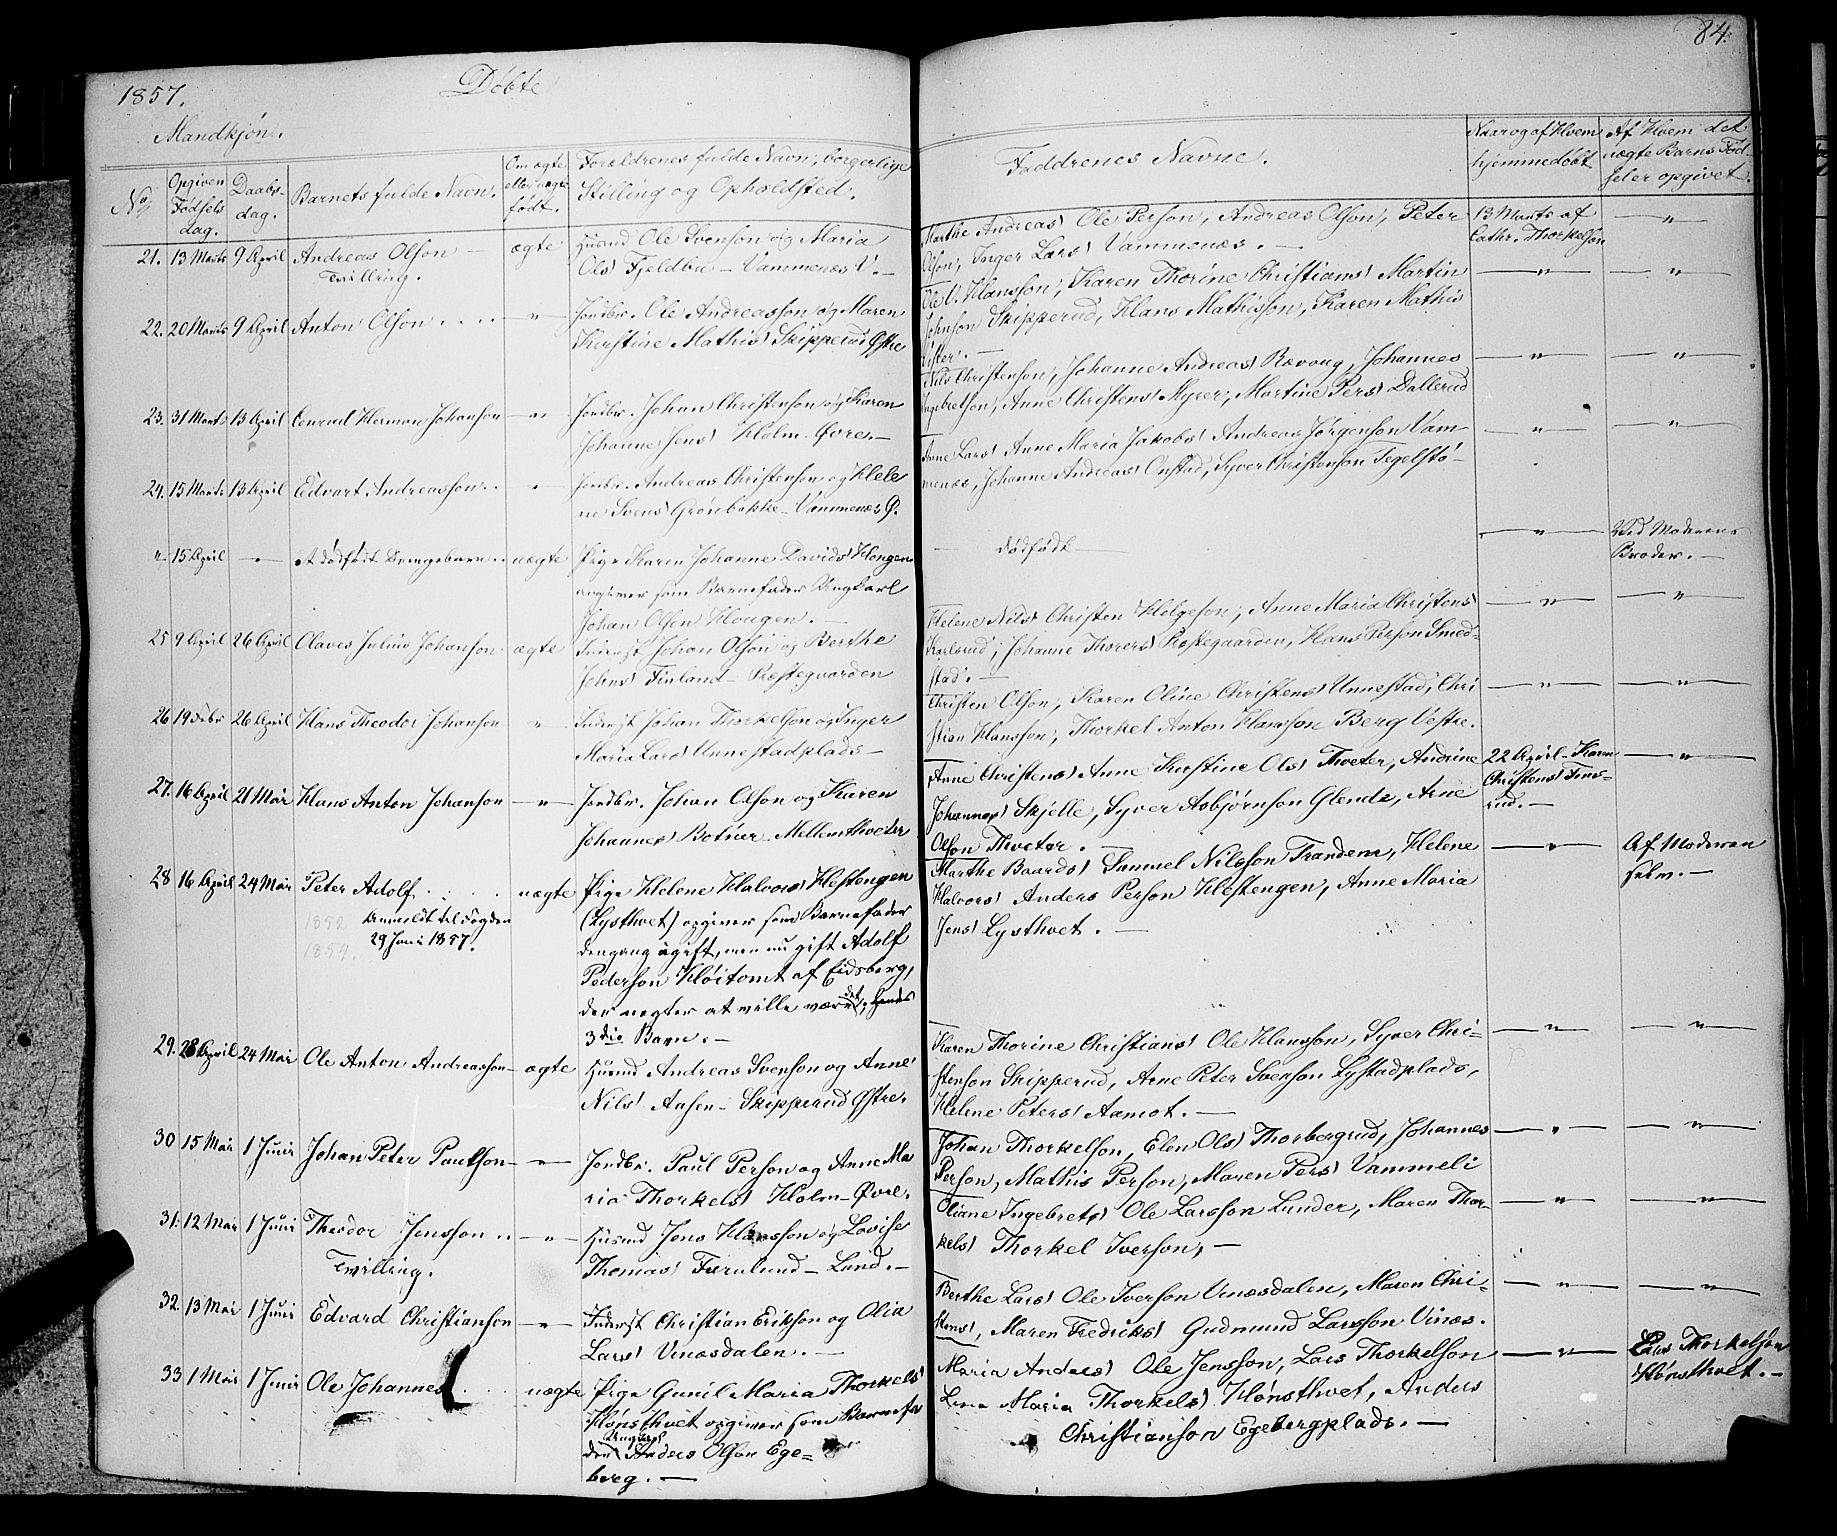 1857.
Döbte
84.
Mandkjön.
No
Opgiven Födsels dag.
Daabs-dag.
Barnets fulde Navn.
Om ægte eller uægte født.
Forældrenes fulde Navn, borgerlige Stilling og Opholdsted.
Faddrenes Navne.
Naar og af Hvem hjemmedøbt
Af Hvem det uægte Barns Födsel er opgivet.
21. 13 Marts 9 April Andreas Olson ægte Husmd Ole Svenson og Maria
Tvilling. Ols Fjeldbu - Vammenæs V. -
Marthe Andreas Ole Person, Andreas Olson, Peter
Olson, Inger Lars Vammenæs. -
13 Marts af
Cathr. Thorkelson
22. 20 Marts 9 April Anton Olson . . . . " Jordbr. Ole Andreasson og Maren
Kirstine Mathis Skipperud Østre
Ole V. Hansson, Karen Thorine Christians Martin
Johnson Skipperud, Hans Mathisson, Karen Mathis
Øster. -
23. 31 Marts 13 April Conrad Herman Johanson - " Jordbr. Johan Christenson og Karen
Johanne Jens Holm - Øvre. -
Nils Christenson, Johanne Andreas Rævoug, Johannes
Ingebretson, Anne Christens Myrer, Martine Pers Dallerud
24. 15 Marts 13 April Edvart Andreasson . . " Jordbr. Andreas Christenson og Hele
ne Svens Grönbakke - Vammenæs Ø.
Anne Lars Anne Maria Jakobs Andreas Jörgenson Vam-
menæs, Johanne Andreas Onstad, Syver Christenson Tegelstö-
" 15 April - " - Et dödfödt Drengebarn . . uægte Pige Karen Johanne Davids Hougen
angiver som Barnefader Ungkarl
Johan Olsen Hougen. -
- dödfödt -
Ved Moderens
Broder. -
25 9 April 26 April Olaves Julius Johanson ægte Inderst Johan Olson og Berthe
Johns Finland - Præstegaarden
Helene Nils Christen Helgeson, Anne Maria Christens
Karlsrud, Johanne Thorers Præstegaarden, Hans Person Smed-
stad. -
26 19 Febr 26 April Hans Theodor Johanson " Inderst Johan Thorkelson og Inger
Maria Lars Unnestadplads -
Christen Olson, Karen Oline Christens Unnestad, Chri
stian Hansson, Thorkel Anton Hansson Berg Vestre.
27. 16 April 21 Mai Hans Anton Johanson - " - Jordbr. Johan Olson og Karen
Johannes Botner - Mellemthveter
Anne Christens Anne Kirstine Ols Thveter, Andrine
Johannes Skjelle, Syver Asbjörnson Glende, Arne
Olson Thveter. -
22 April - Karen
Christens Fins-
rud. -
28 16 April 24 Mai Peter Adolf . . . . uægte Pige Helene Halvors Hestengen
1852 Anmeldt til Fogden (Lysthvet) opgiver som Barnefader
29 Juni 1857. dengang ugift, men nu gift Adolf
1854. Pederson Klöitomt af Eidsberg,
der negter at ville være det, hendes
3die Barn. -
Marthe Baards Samuel Nilsson Trandem, Helene
Halvors Anders Person Hestengen, Anne Maria
Jens Lysthvet. -
Af Moderen
selv. -
29. 28 April 24 Mai Ole Anton Andreasson - ægte Husmd Andreas Svenson og Anne
Nils Aasen - Skipperud Østre.
Karen Thorine Christians Ole Hansson, Syver Chri-
stenson Skipperud, Arne Peter Svenson Lystadplads,
Helene Peters Aamot. -
30 15 Mai 1 Juni Johan Peter Paulson - " - Jordbr. Paul Person og Anne Ma
ria Thorkels Holm - Øvre.
Johan Thorkelson, Elen Ols Thorbergrud, Johannes
Person, Mathis Person, Maren Pers Vammeli
31. 12 Mai 1 Juni Theodor Jensson . . - " - Husmd Jens Hansson og Lovise
Tvilling. Thomas Furulund - Lund. -
Oliane Ingebrets Ole Larsson Lunder, Maren Thor-
kels Thorkel Iverson, -
32. 13 Mai 1 Juni Edvard Christianson - " - Inderst Christian Erikson og Olia
Lars Vinæsdalen. -
Berthe Lars Ole Iverson Vinæsdalen, Maren Chri-
stens, Maren Fredriks Gudmund Larsson Vinæs.
33 1 Mai 1 Juni Ole Johannes . . uægte Pige Gunil Maria Thorkels
Hönsthvet opgiver som Barnefa
der Ungkarl Anders Olson Ege-
berg. -
Maria Anders Ole Jensson, Lars Thorkelson
Lena Maria Thorkels Hönsthvet, Anders
Christianson Egebergplads. -
Lars Thorkelson
Hönsthvet. -